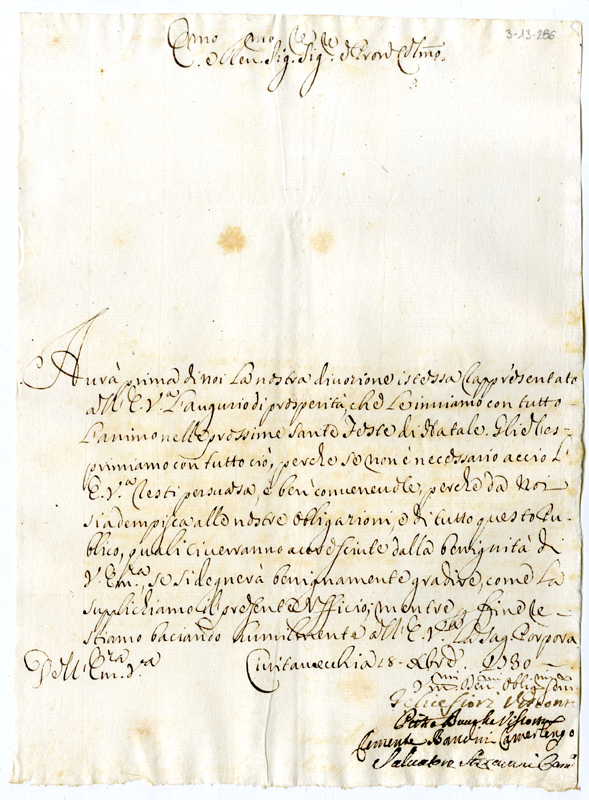 3-13-286
Emo. e Reu. Sig. Sig. e Pron. Colmo.
Aurà prima di noi la nostra diuozione istessa rappresentato
all' E. V.a l'augurio di prosperità, che le inuiamo con tutto
l'animo nelle prossime Sante Feste di Natale. Gliel' es-
primiamo con tutto ciò, perche se non è necessario acciò l'
E. V.a resti persuasa, è ben conueneuole, perche da noi
si adempisca alle nostre obligazioni, e di tutto questo Pu-
blico, quali ci uerranno accresciute dalla benignità di
V. Em.za, se si degnerà benignamente gradire, come la
supplichiamo il presente Vfficio; mentre p fine re-
stiamo baciando humilmente all' E. V.ra la Sag. Porpora
Dell' Em.za V.ra Ciuitauecchia 18 Xbre 1730
Deu. Oblig. Seru.
Felice Visconte
Pietro Visconte
Clemente Bandini Camerlengo
Saluatore